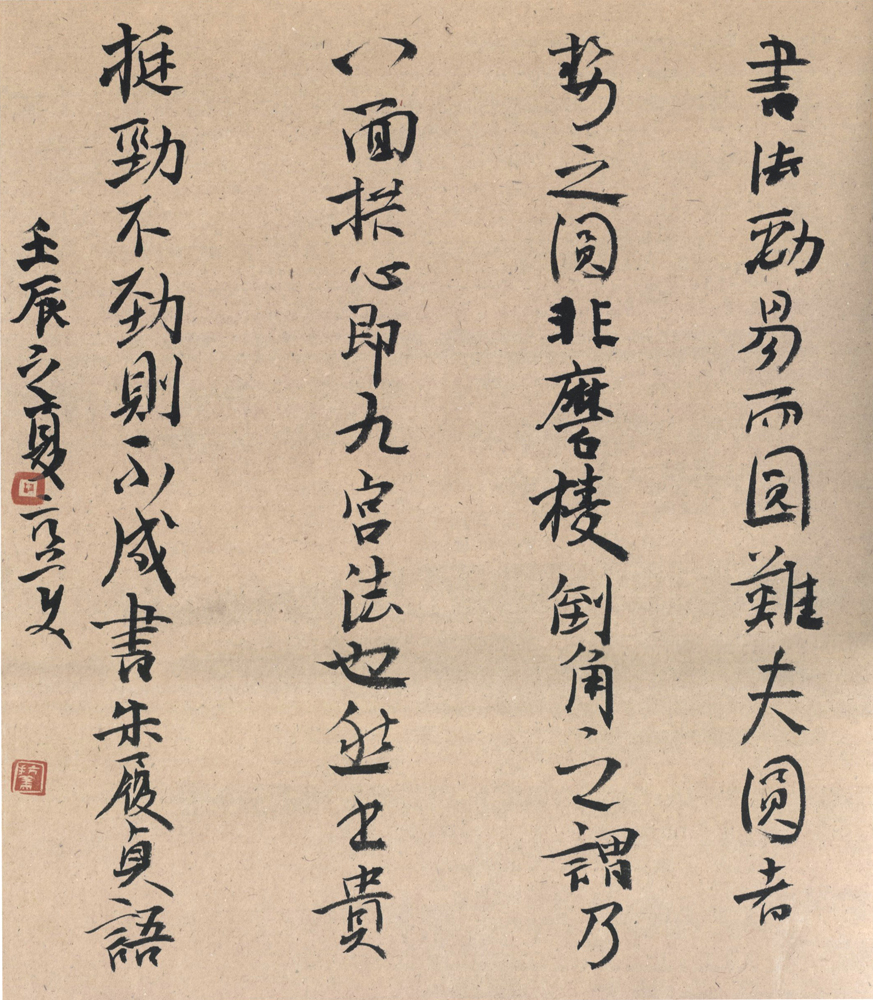 書法勁易而圓難夫圓者
勢之圓非磨棱倒角之謂乃
八面拱心即九宮法也然书貴
挺勁不勁則不成書朱履貞語
壬辰之夏